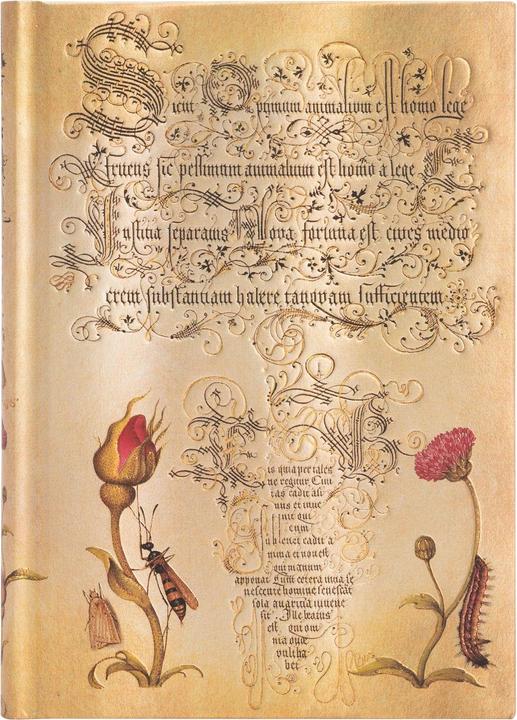 Sicut Optimum animalium est homo lege
Fruens sic pessimum animalium est homo a lege Et
Iustitia separatus Nova fortuna est cives medio
crem substantiam habere tanquam sufficientem
is quia per tales
ne regitur Civi
tas cadit asi
nus et inve
nit qui
eum
sublevet cadit a
nima et non est
qui manum
apponat Cum cetera vitia se
nescente homine senescat
sola avaritia iuvene
scit
est qui om
nia quae
vult ha
bet